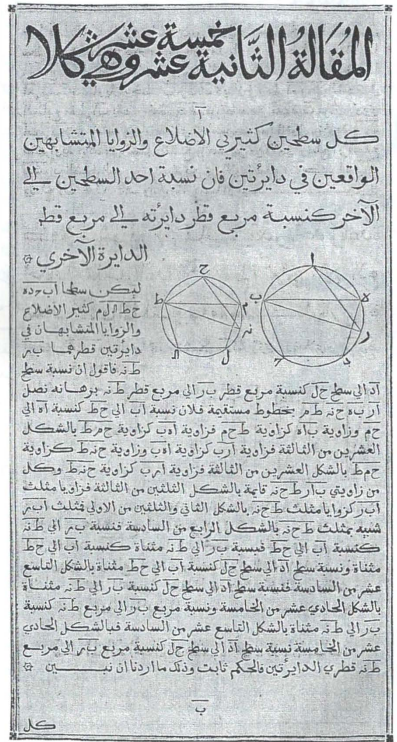 المقالة الثانية عشر وهي خمسة عشر شكلا
ا
كل سطحين كثيري الاضلاع والزوايا المتشابهين
الواقعين في دايرتين فان نسبة احد السطحين الي
الآخر كنسبة مربع قطر دايرته الي مربع قطر
الدايرة الآخري
ليكن سطحا اب جده
كثير الاضلاع
والزوايا المتشابهان في
دايرتين قطرهما ب ر
ط نه فاقول ان نسبة سطح
اد الي سطح ح ل كنسبة مربع قطر ب ر الي مربع قطر ط نه برهانه نصل
بخطوط مستقيمة فلان نسبة اب الي ح ط كنسبة اه الي
ح م وزاوية ب اه كزاوية ط ح م فزاوية اه ب كزاوية ح م ط بالشكل
العشرين من الثالثة فزاوية ار ب كزاوية اه ب وزاوية ح نه ط كزاوية
ح م ط بالشكل العشرين من الثالثة فزاوية ار ب كزاوية ح نه ط وكل
من زاويتي ب ار ط ح نه قايمة بالشكل الثلثين من الثالثة فزوايا مثلث
اب ر كزوايا مثلث ط ح نه بالشكل الثاني والثلثين من الاولي فمثلث اب ر
شبيه بمثلث ط ح نه بالشكل الرابع من السادسة فنسبة ب ر الي ط نه
كنسبة اب الي ح ط فنسبة ب ر الي ط نه مثناة كنسبة اب الي ح ط
مثناة ونسبة سطح اد الي سطح ح ل كنسبة اب الي ح ط مثناة بالشكل التاسع
عشر من السادسة فنسبة سطح اد الي سطح ح ل كنسبة ب ر الي ط نه مثناة
بالشكل الحادي عشر من الخامسة ونسبة مربع ب ر الي مربع ط نه كنسبة
ب ر الي ط نه مثناة بالشكل التاسع عشر من السادسة فبالشكل الحادي
عشر من الخامسة نسبة سطح اد الي سطح ح ل كنسبة مربع ب ر الي مربع
ط نه قطري الدايرتين فالحكم ثابت وذلك ما اردنا ان نبين
ب
كل